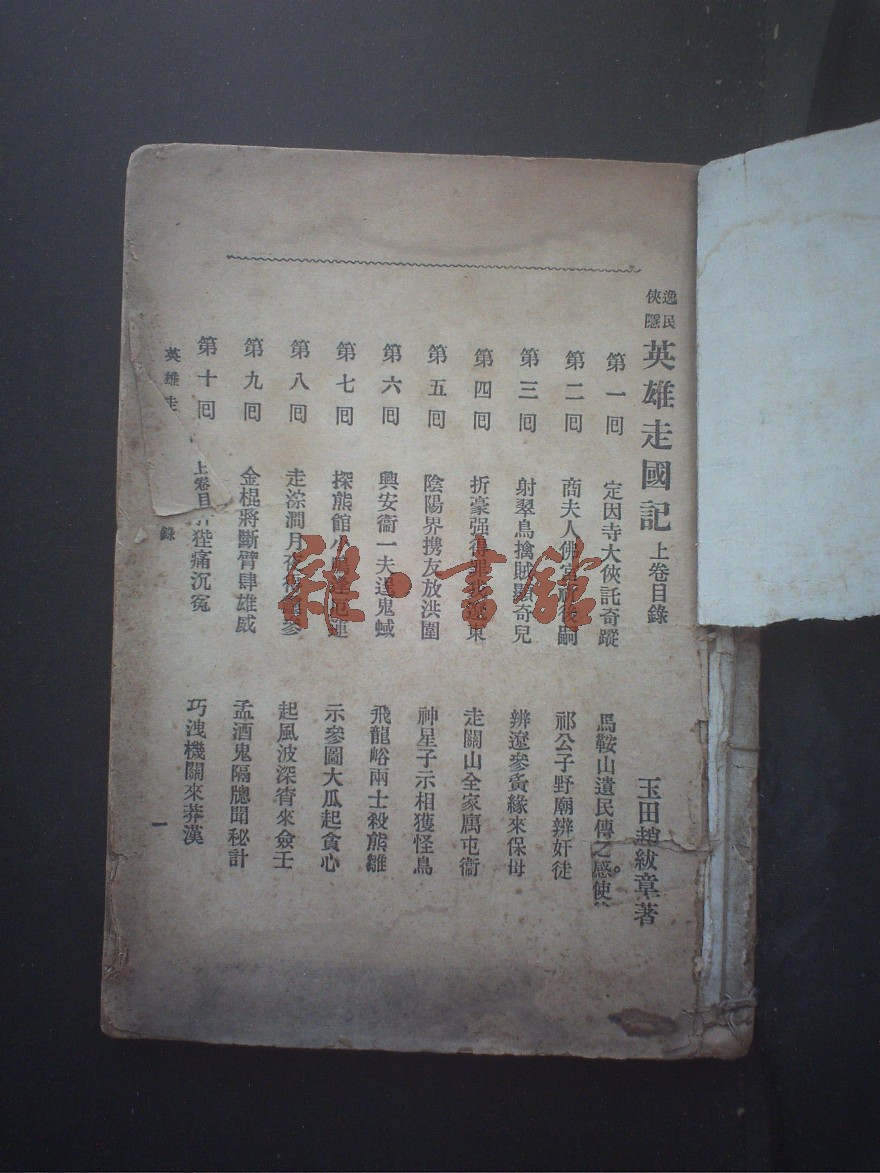 逸民俠隱
英雄走國記 上卷目錄
玉田趙紱章著
第一回 定因寺大俠託奇蹤 馬鞍山遺民傳
第二回 商夫人佛宮祈後嗣 祁公子野廟辨奸徒
第三回 射翠鳥擒賊 奇兒 辨遼參夤緣來保母
第四回 折豪强得 東 走關山全家厲屯衞
第五回 陰陽界携友放洪圍 神星子示相獲怪鳥
第六回 興安衞一夫遇鬼蜮 飛龍峪兩士殺熊雛
第七回 探熊館小 厄運 示參圖大瓜起貪心
第八回 走淙澗月夜 參 起風波深宵來僉壬
第九回 金棍將斷臂肆雄威 孟酒鬼隔牕聞秘計
第十回 狴痛沉冤 巧洩機關來莽漢
英雄走
上卷目
錄
一
雜·書館